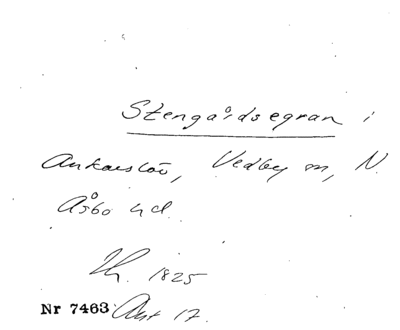 Stengårdsegran i
Ankarslöv, Vedby sn, N.
Åsbo hd.
Th. 1825
Nr 7463 Ant 17.